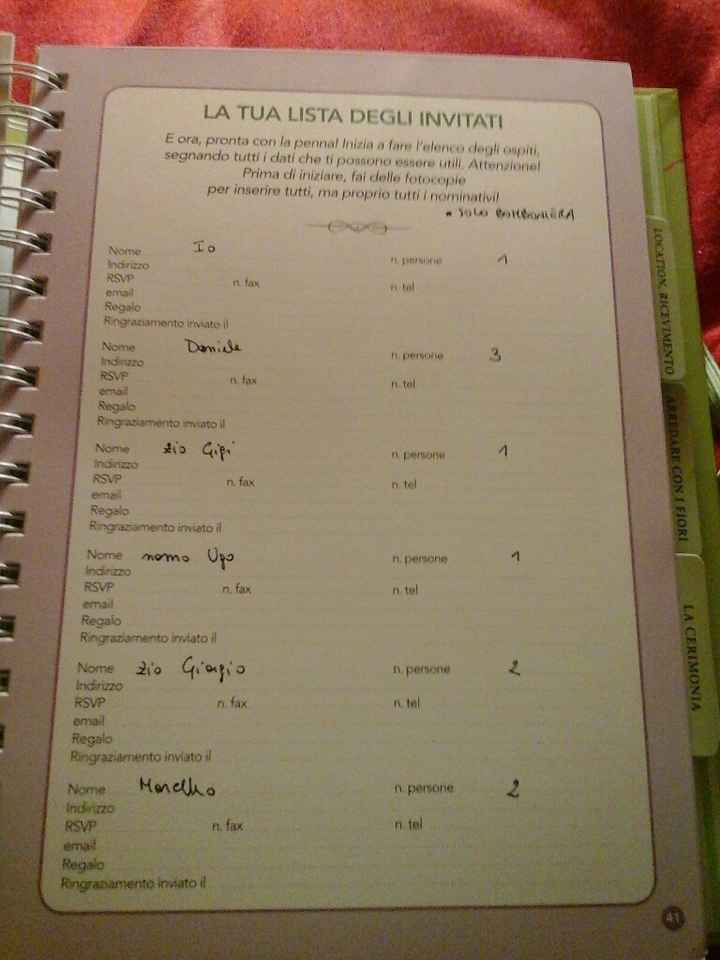 LA TUA LISTA DEGLI INVITATI
E ora, pronta con la penna! Inizia a fare l'elenco degli ospiti,
segnando tutti i dati che ti possono essere utili. Attenzione!
Prima di iniziare, fai delle fotocopie
per inserire tutti, ma proprio tutti i nominativi!
* SOLO BOMBONIERA
Nome Io n. persone 1
Indirizzo
RSVP n. fax n. tel
email
Regalo
Ringraziamento inviato il
Nome Daniele n. persone 3
Indirizzo
RSVP n. fax n. tel
email
Regalo
Ringraziamento inviato il
Nome zio Gigi n. persone 1
Indirizzo
RSVP n. fax n. tel
email
Regalo
Ringraziamento inviato il
Nome nonno Ugo n. persone 1
Indirizzo
RSVP n. fax n. tel
email
Regalo
Ringraziamento inviato il
Nome zio Giorgio n. persone 2
Indirizzo
RSVP n. fax n. tel
email
Regalo
Ringraziamento inviato il
Nome Marcello n. persone 2
Indirizzo
RSVP n. fax n. tel
email
Regalo
Ringraziamento inviato il
41
LOCATION, RICEVIMENTO
ARREDARE CON I FIORI
LA CERIMONIA